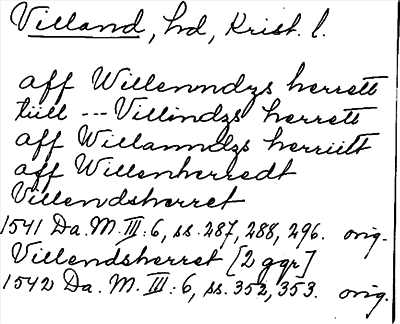 Villand, hd, Krist. l.
aff Willenndzs herrett
tüll --- Villindzs herrett
aff Willanndzs herriitt
aff Willenherredt
Villendsherret
1541 Da. M. III: 6, ss. 287, 288, 296. orig.
Villendsherret [2 ggr]
1542 Da. M. III: 6, ss. 352, 353. orig.